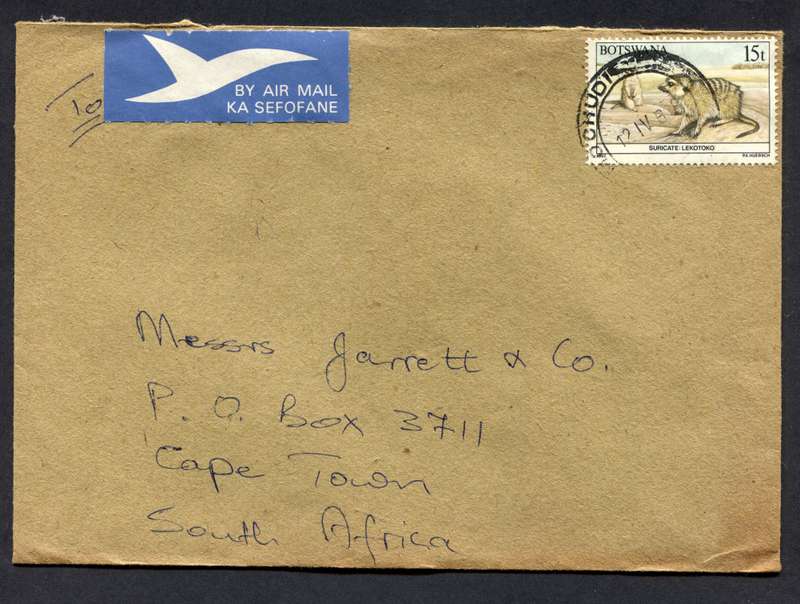 To
BY AIR MAIL
KA SEFOFANE
BOTSWANA 15t
MOCHUDI
12 IV
SURICATE: LEKOTOKO
Messrs Jarrett & Co.
P. O. Box 3711
Cape Town
South Africa